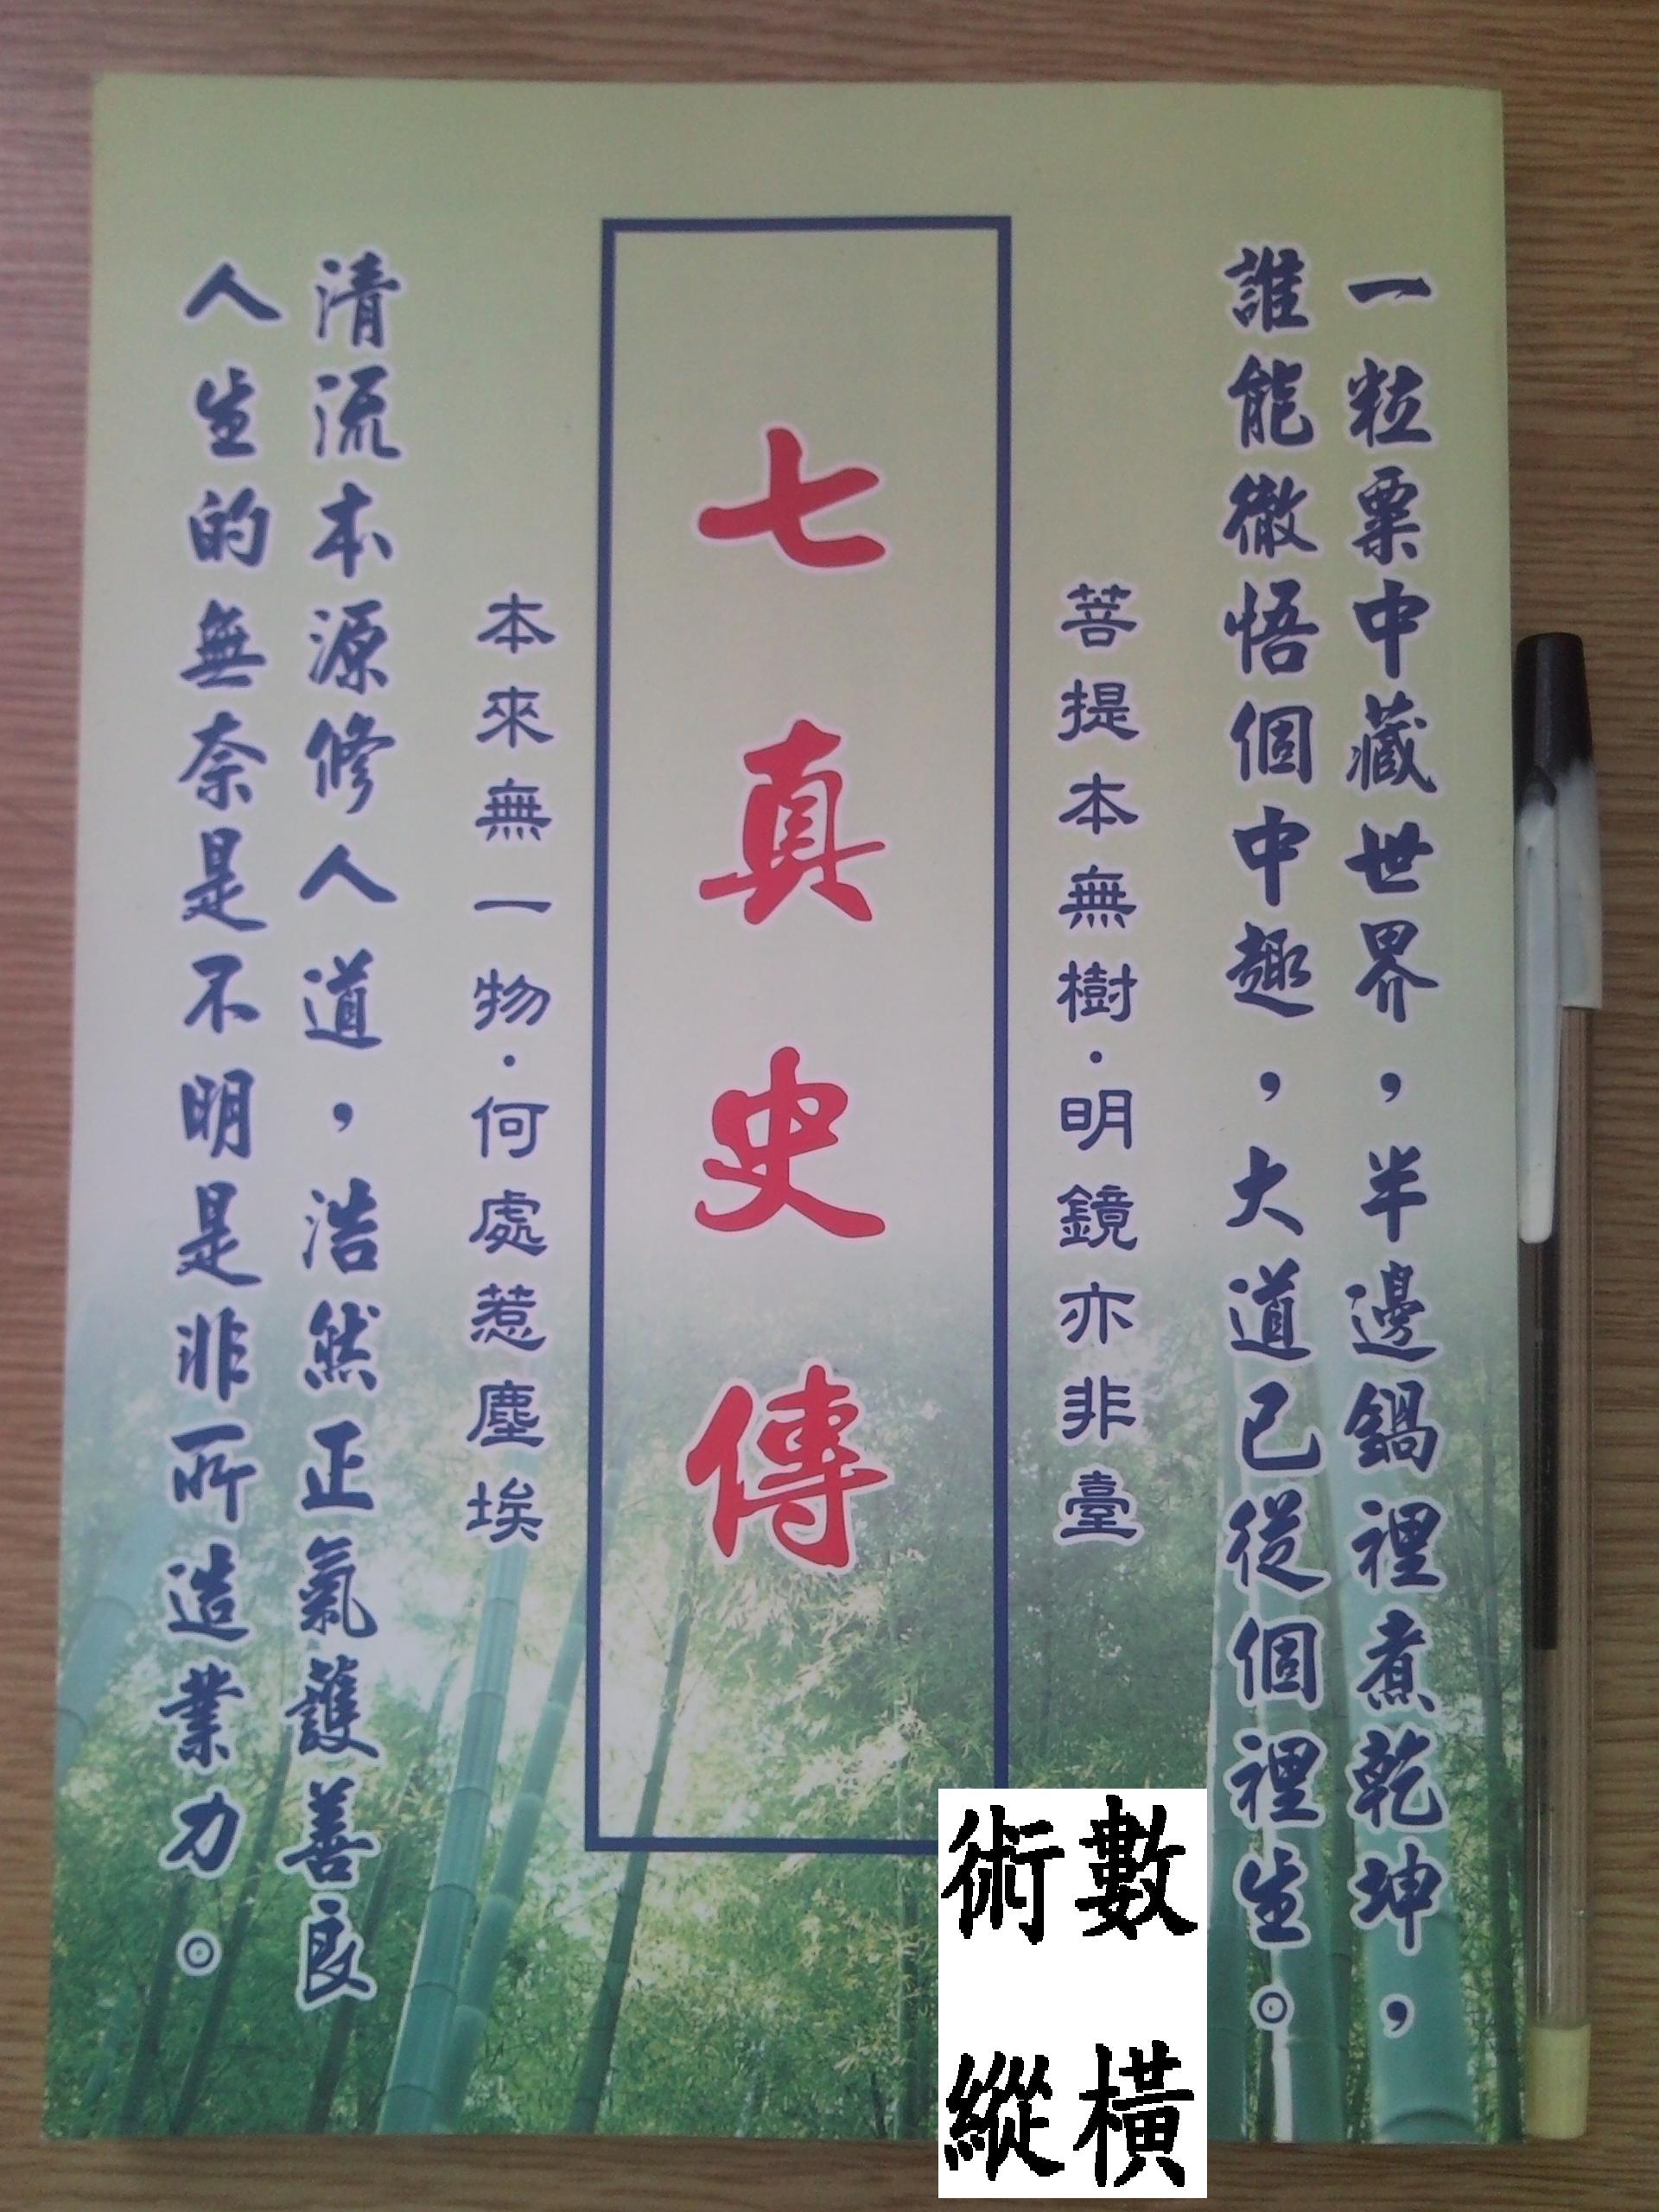 一粒粟中藏世界，半邊鍋裡煮乾坤，
誰能徹悟個中趣，大道已從個裡生。
菩提本無樹·明鏡亦非臺
七真史傳
本來無一物·何處惹塵埃
清流本源修人道，浩然正氣護善良
人生的無奈是不明是非所造業力。
數術
橫縱